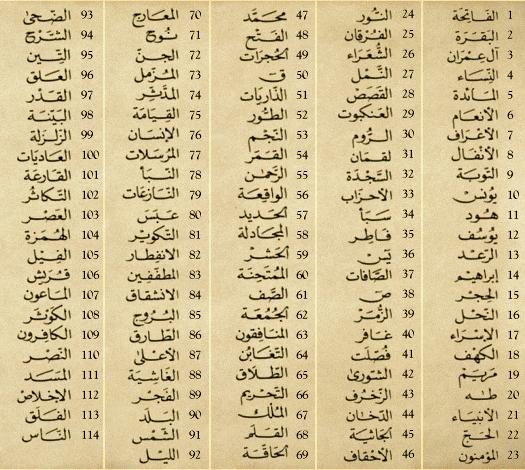 1 الفاتحة
2 البقرة
3 آل عمران
4 النساء
5 المائدة
6 الأنعام
7 الأعراف
8 الأنفال
9 التوبة
10 يونس
11 هود
12 يوسف
13 الرعد
14 إبراهيم
15 الحجر
16 النحل
17 الإسراء
18 الكهف
19 مريم
20 طه
21 الأنبياء
22 الحج
23 المؤمنون
24 النور
25 الفرقان
26 الشعراء
27 النمل
28 القصص
29 العنكبوت
30 الروم
31 لقمان
32 السجدة
33 الأحزاب
34 سبأ
35 فاطر
36 يس
37 الصافات
38 ص
39 الزمر
40 غافر
41 فصلت
42 الشورى
43 الزخرف
44 الدخان
45 الجاثية
46 الأحقاف
47 محمد
48 الفتح
49 الحجرات
50 ق
51 الذاريات
52 الطور
53 النجم
54 القمر
55 الرحمن
56 الواقعة
57 الحديد
58 المجادلة
59 الحشر
60 الممتحنة
61 الصف
62 الجمعة
63 المنافقون
64 التغابن
65 الطلاق
66 التحريم
67 الملك
68 القلم
69 الحاقة
70 المعارج
71 نوح
72 الجن
73 المزمل
74 المدثر
75 القيامة
76 الإنسان
77 المرسلات
78 النبأ
79 النازعات
80 عبس
81 التكوير
82 الانفطار
83 المطففين
84 الانشقاق
85 البروج
86 الطارق
87 الأعلى
88 الغاشية
89 الفجر
90 البلد
91 الشمس
92 الليل
93 الضحى
94 الشرح
95 التين
96 العلق
97 القدر
98 البينة
99 الزلزلة
100 العاديات
101 القارعة
102 التكاثر
103 العصر
104 الهمزة
105 الفيل
106 قريش
107 الماعون
108 الكوثر
109 الكافرون
110 النصر
111 المسد
112 الإخلاص
113 الفلق
114 الناس